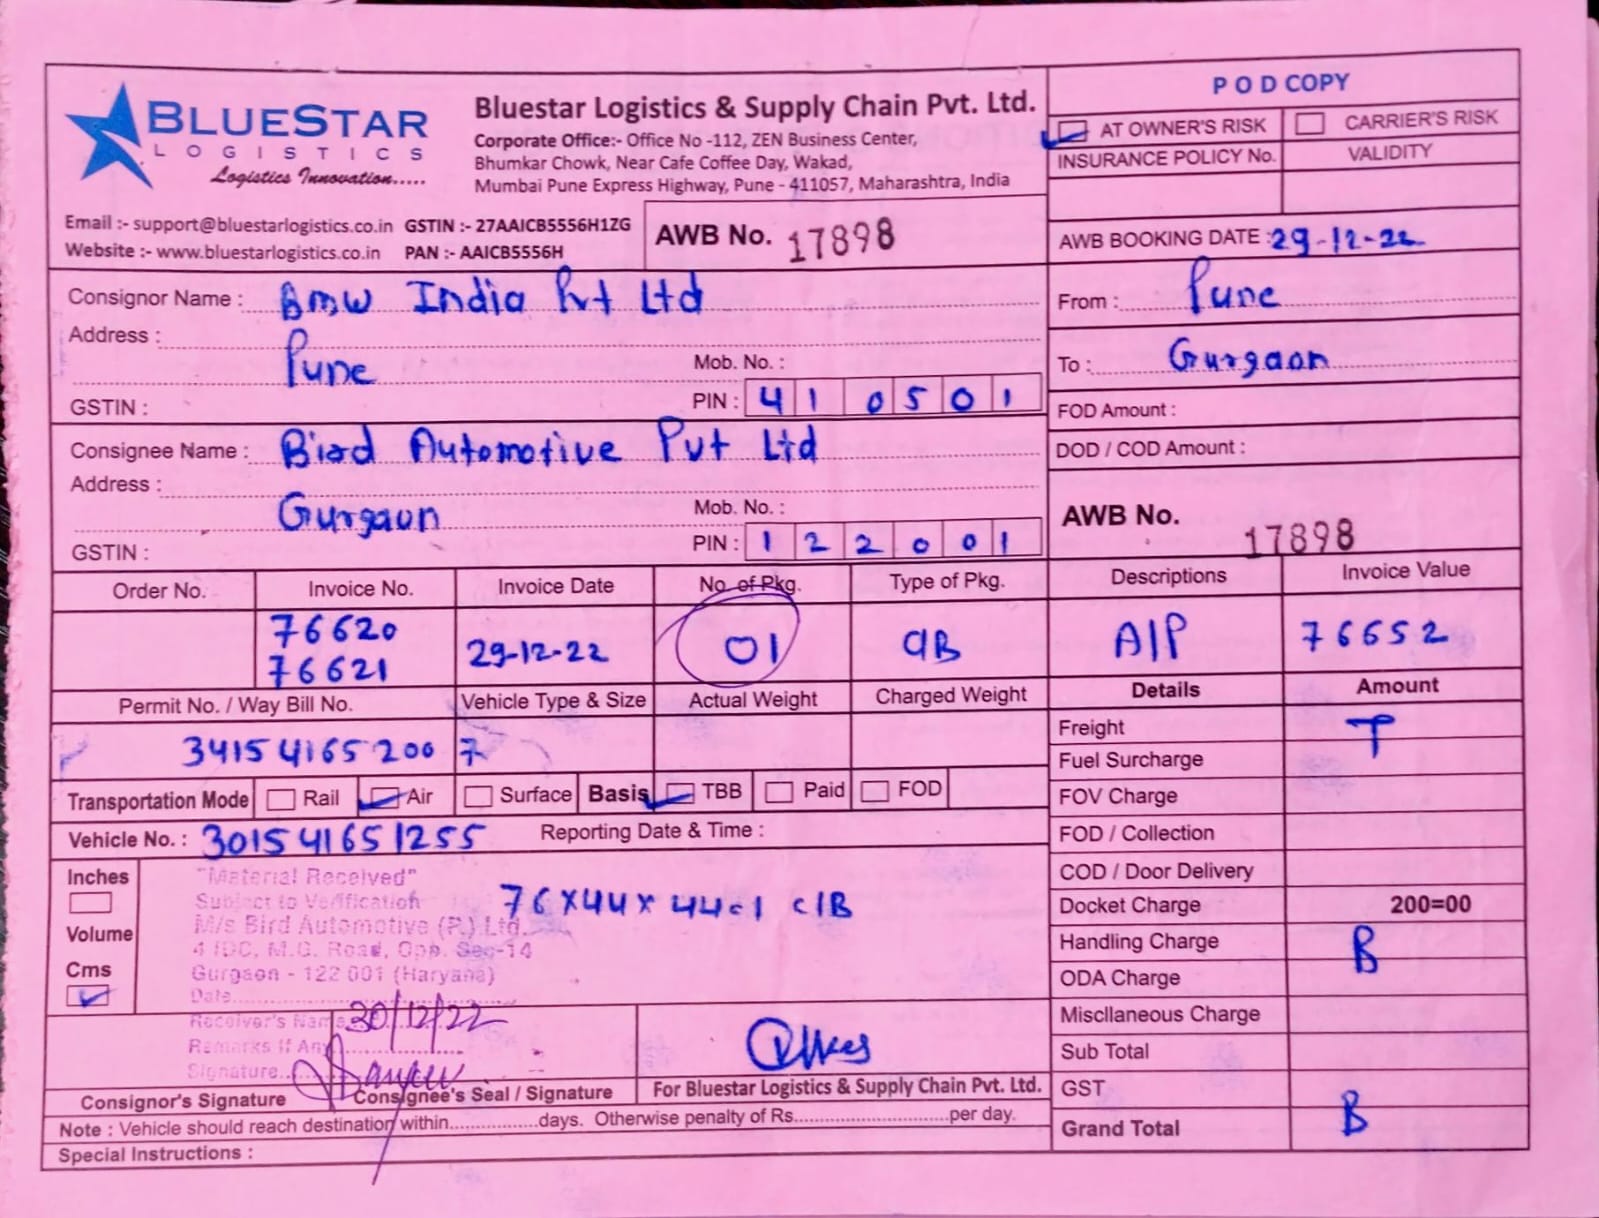 BLUESTAR
LOGISTICS
Logistics Innovation.....
Bluestar Logistics & Supply Chain Pvt. Ltd.
Corporate Office:- Office No -112, ZEN Business Center,
Bhumkar Chowk, Near Cafe Coffee Day, Wakad,
Mumbai Pune Express Highway, Pune - 411057, Maharashtra, India
Email :- support@bluestarlogistics.co.in GSTIN :- 27AAICB5556H1ZG
Website :- www.bluestarlogistics.co.in PAN :- AAICB5556H
AWB No. 17898
POD COPY
AT OWNER'S RISK CARRIER'S RISK
INSURANCE POLICY No. VALIDITY
AWB BOOKING DATE : 29-12-22
Consignor Name : BMW India Pvt Ltd
Address :
Pune
Mob. No. :
GSTIN :
PIN : 410501
From : Pune
To : Gurgaon
FOD Amount :
DOD / COD Amount :
Consignee Name : Bird Automotive Pvt Ltd
Address :
Gurgaon
Mob. No. :
GSTIN :
PIN : 122001
AWB No. 17898
Order No. Invoice No. Invoice Date No. of Pkg. Type of Pkg. Descriptions Invoice Value
76620
76621
29-12-22 01 CB A/P 76652
Permit No. / Way Bill No. Vehicle Type & Size Actual Weight Charged Weight
341541652007
Transportation Mode Rail Air Surface Basis TBB Paid FOD
Vehicle No. : 301541651255 Reporting Date & Time :
Inches
Volume
Cms
76x44x44=1 C/B
"Material Received"
Subject to Verification
M/s Bird Automotive (P.) Ltd.
4 IDC, M.G. Road, Opp. Sec-14
Gurgaon - 122 001 (Haryana)
Date
30/12/22
Receiver's Name
Remarks If Any
Signature
Consignor's Signature Consignee's Seal / Signature For Bluestar Logistics & Supply Chain Pvt. Ltd.
Note : Vehicle should reach destination within.................days. Otherwise penalty of Rs..............................per day.
Special Instructions :
Details Amount
Freight T
Fuel Surcharge
FOV Charge
FOD / Collection
COD / Door Delivery
Docket Charge 200=00
Handling Charge B
ODA Charge
Miscllaneous Charge
Sub Total
GST
Grand Total B